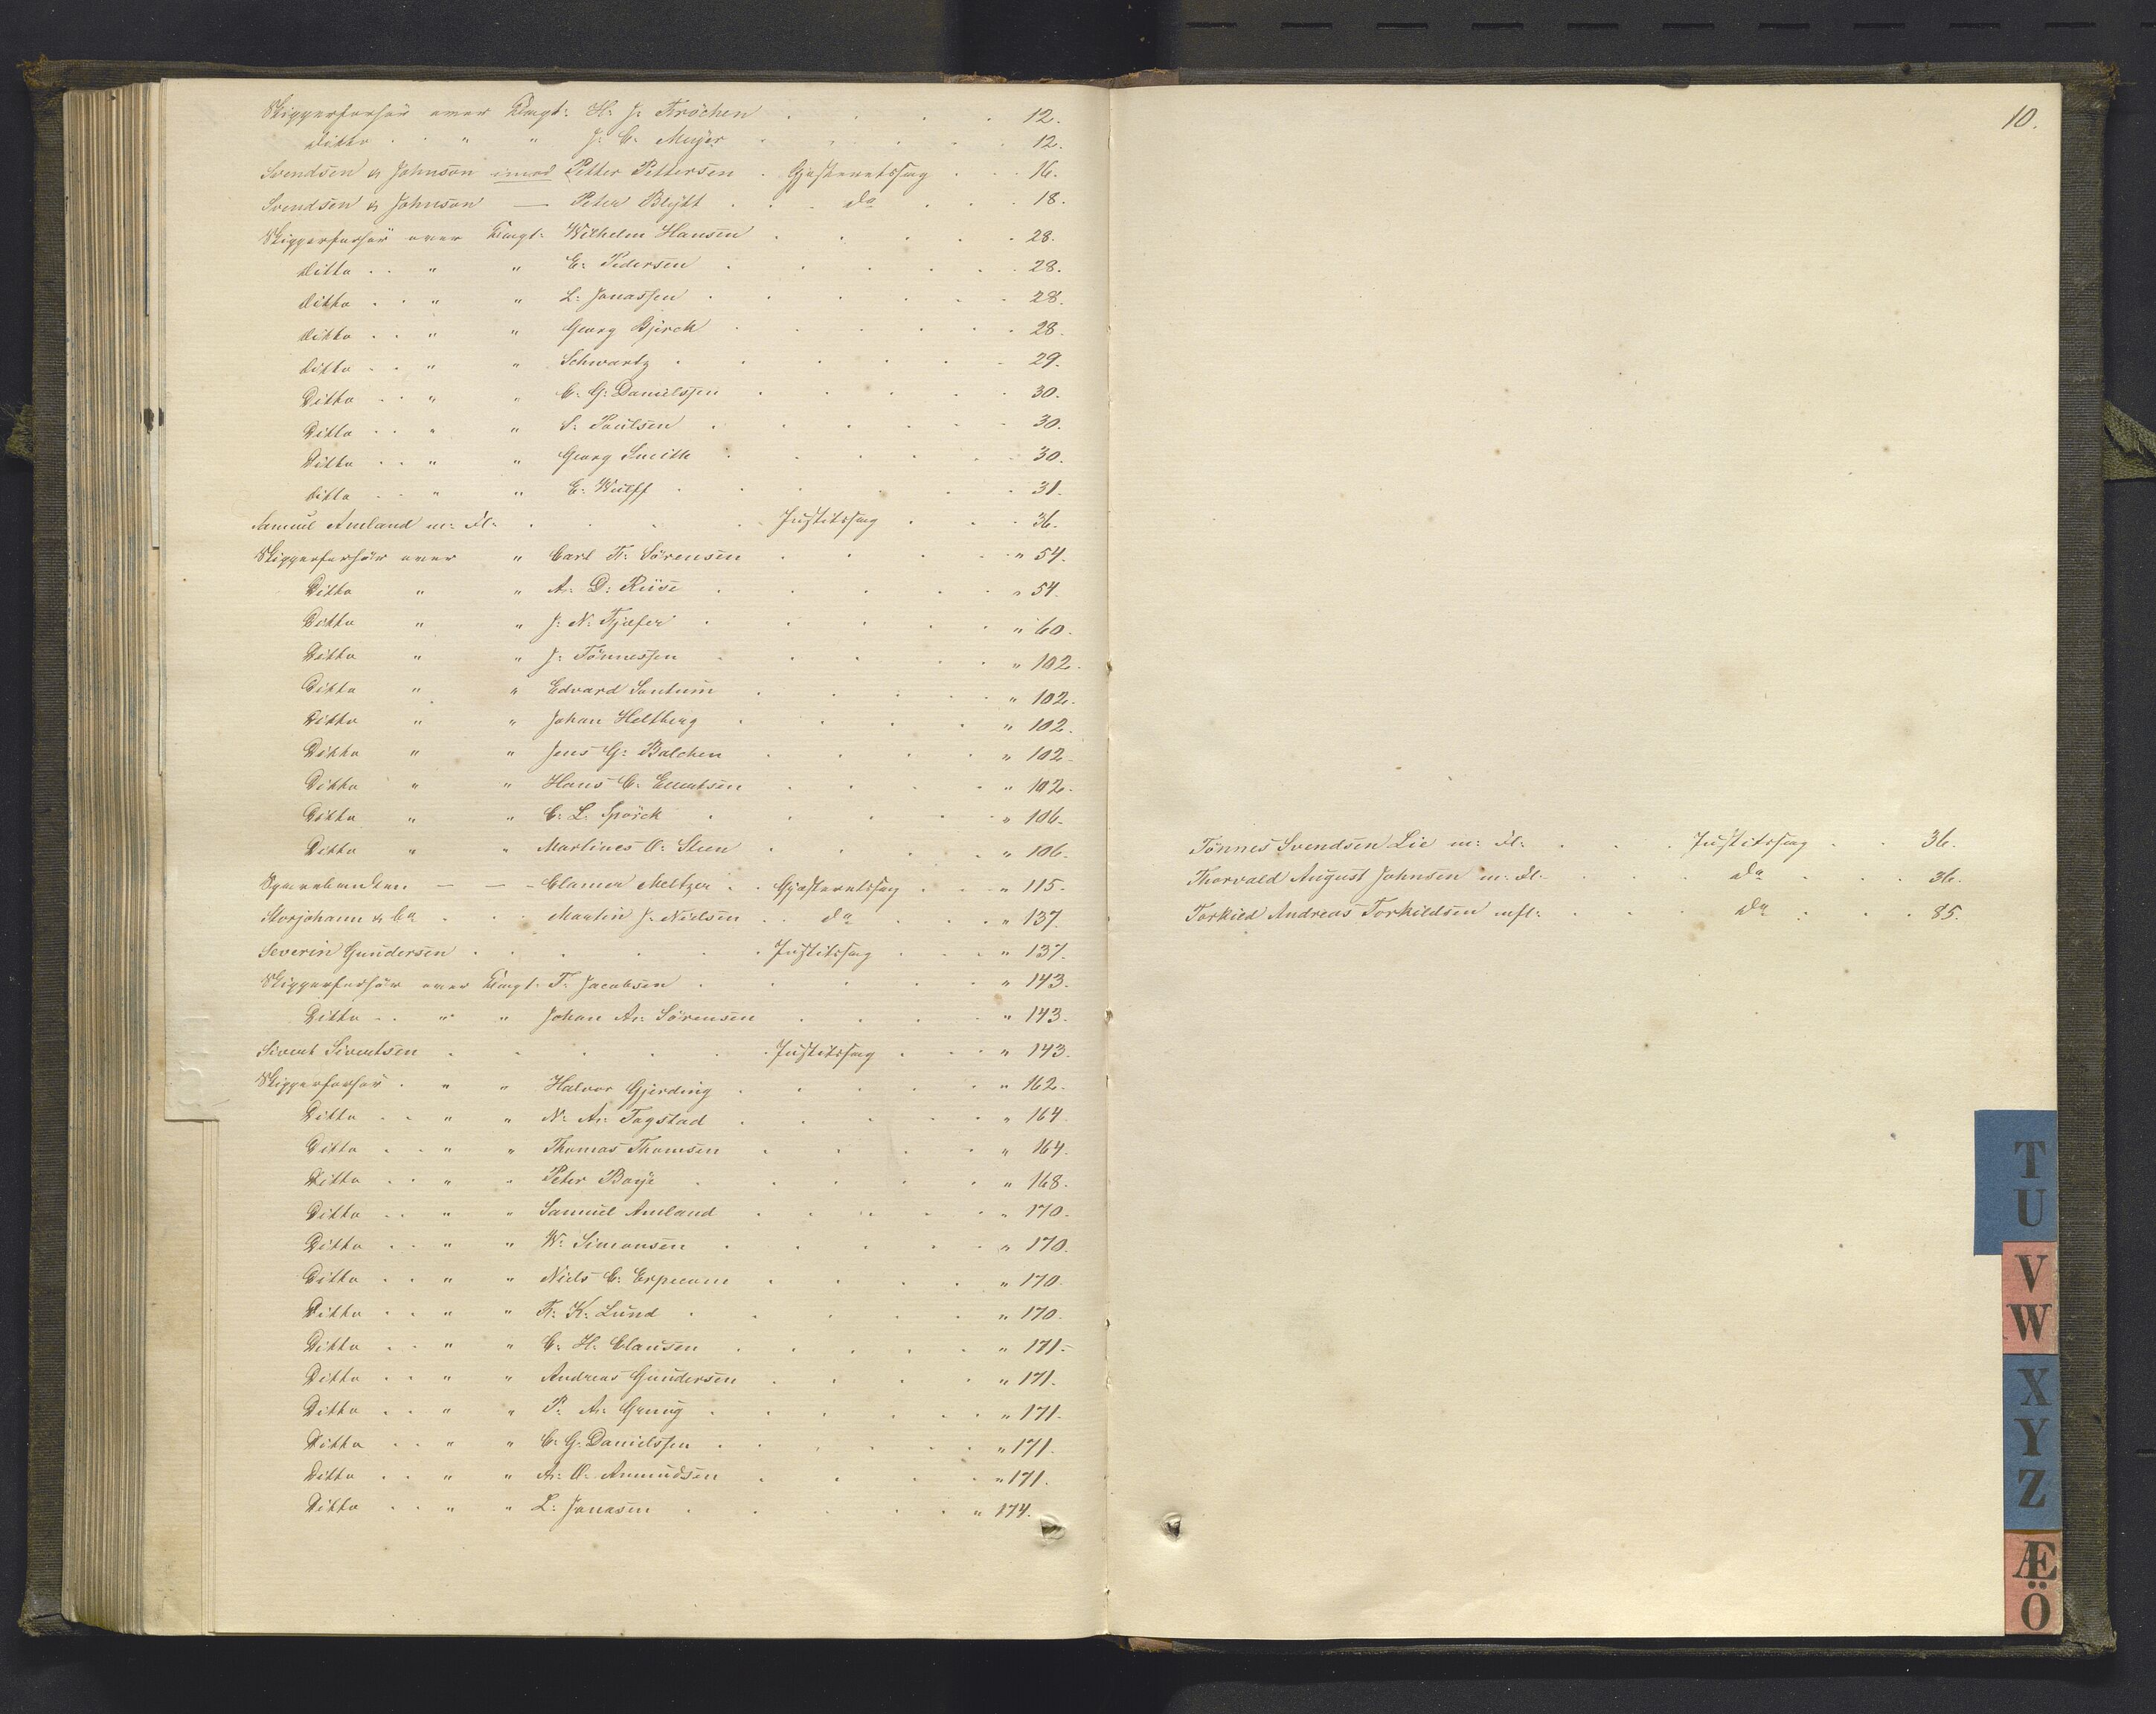 Skipperforhör over Capt: H. J. Fröchen . . . . 12.
ditto . . " " J: C. Meyer . . . . 12.
Svendsen & Johnson imod Petter Pettersen . Gjesteretssag . . . 16.
Svendsen & Johnson — Peter Blytt . . . do . . . 18.
Skipperforhör over Capt: Wilhelm Hansen . . . . 28.
ditto . . " " E: Pedersen . . . . 28.
ditto . . " " L: Jonassen . . . . 28.
ditto . . " " Georg Bjerck . . . . 28.
ditto . . " " Schwartz . . . . 29.
Ditto . . " " C. G. Danielssen . . . . 30.
Ditto . . " " S: Poulsen . . . . 30.
Ditto . . " " Georg Smith . . . . 30.
ditto . . " " E: Wulff . . . . 31.
Samuel Amland m: fl: . . . Justitssag . . . 36.
Skipperforhör over " Carl Fr: Sörensen . . . " 54.
Ditto " " A: D: Riise . . . " 54.
Ditto " " J: N: . . . " 60.
Ditto " " J: Tönnessen . . . " 102.
Ditto " " Edvard Sontum . . . " 102.
Ditto " " Johan Heltberg . . . " 102.
Ditto " " Jens G: Balchen . . . " 102.
Ditto " " Hans C. . . . " 102.
Ditto " " C: L. Spörck . . . " 106.
Ditto " " Martines O: Steen . . . " 106.
Sparebanken — — Clamer Meltzer . . Gjesteretssag . . . " 115.
Storjohann & Co . . . Martin J. Nielsen . . do . . . " 137.
Severin Gundersen . . . . Justitssag . . . " 137.
Skipperforhör over Capt: T. Jacobsen . . . " 143.
Ditto . . " " Johan A: Sörensen . . . " 143.
Sivert Sivertsen . . . . Justitssag . . . " 143.
Skipperforhör . " " Halvor Gjerding . . . " 162.
Ditto . . " " N: A: Fagstad . . . " 164.
Ditto . . " " Thomas Thomsen . . . " 164.
Ditto . . " " Peter Boye . . . " 168.
Ditto . . " " Samuel Amland . . . " 170.
Ditto . . " " W: Simonsen . . . " 170.
Ditto . . " " Niels C: . . . " 170.
Ditto . . " " Fr: K: Lund . . . " 170.
Ditto . . " " C: H: Clausen . . . " 171.
Ditto . . " " Andreas Gundersen . . . " 171.
Ditto . . " " P: A: Grung . . . " 171.
Ditto . . " " C: G. Danielssen . . . " 171.
Ditto . . " " A: O. Amundsen . . . " 171.
Ditto . . " " L: Jonasen . . . " 174.
10.
Tönnes Svendsen Lie m: fl: . . . Justitssag . . 36.
Thorvald August Johnsen m: fl: . . . do . . . 36.
Torkild Andreas Torkildsen mfl: . . . do . . . 85.
T
U
V
W
X
Y
Z
Æ
Ö